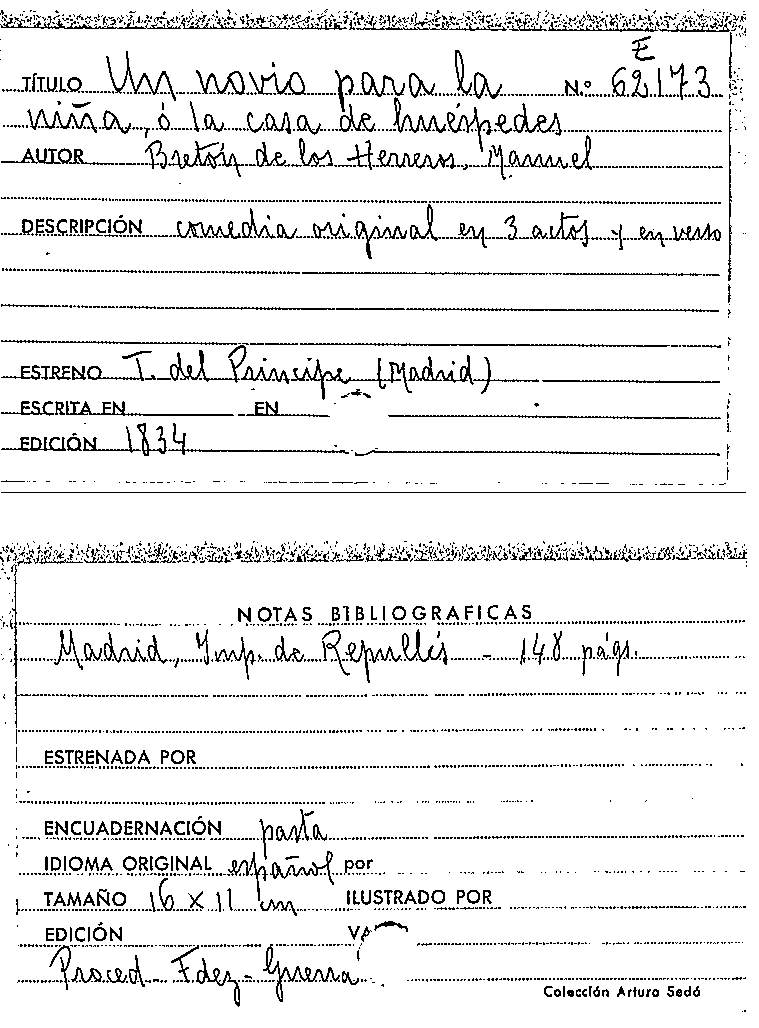 E
TÍTULO Un novio para la N.º 62173
niña, ó la casa de huéspedes
AUTOR Bretón de los Herreros, Manuel
DESCRIPCIÓN comedia original en 3 actos y en verso
ESTRENO T. del Principe (Madrid)
ESCRITA EN EN
EDICIÓN 1834
NOTAS BIBLIOGRAFICAS
Madrid, Imp. de Repullés - 148 págs.
ESTRENADA POR
ENCUADERNACIÓN pasta
IDIOMA ORIGINAL español por
TAMAÑO 16 X 11 cm ILUSTRADO POR
EDICIÓN
Proced- Fdez- Guerra
Colección Arturo Sedó